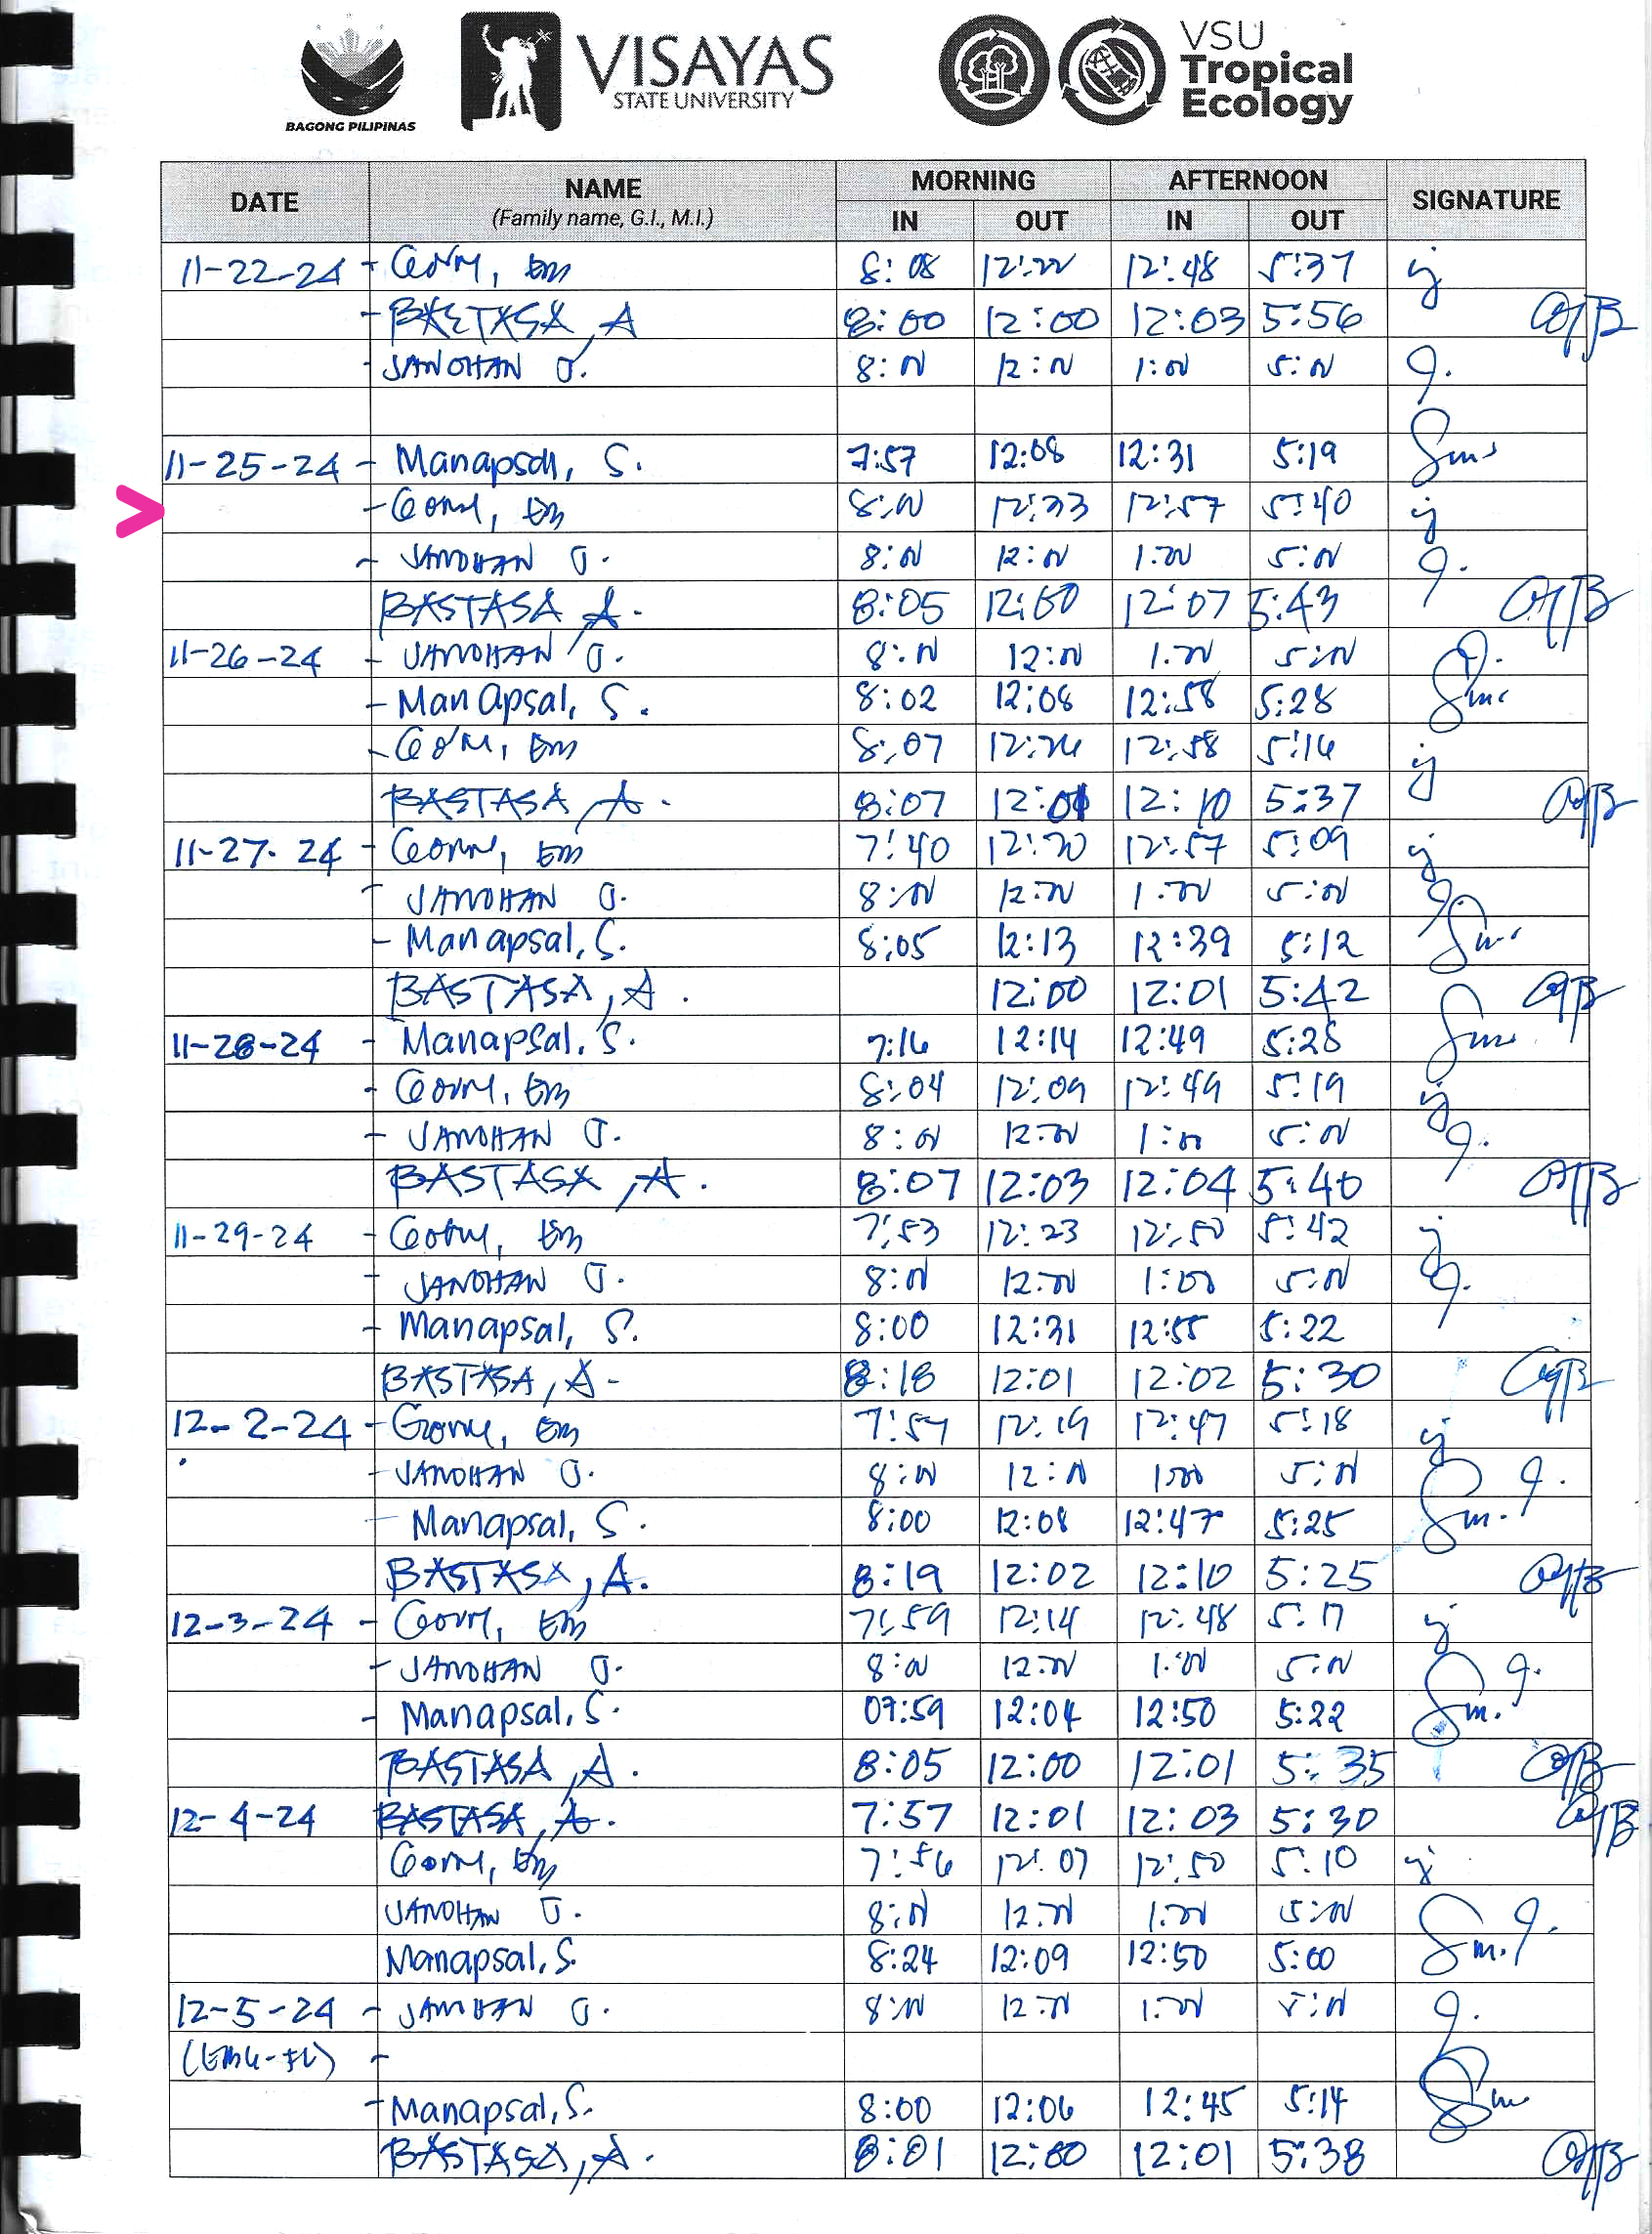 BAGONG PILIPINAS
VISAYAS
STATE UNIVERSITY
VSU
Tropical
Ecology
DATE NAME MORNING AFTERNOON SIGNATURE
(Family name, G.I., M.I.) IN OUT IN OUT
11-22-24 - 8:08 12:22 12:48 5:37
- BASTASA, A 8:00 12:00 12:03 5:56
- JANOHAN J. 8:00 12:00 1:00 5:00
11-25-24 - Manapsal, S. 7:57 12:08 12:31 5:19
>
- 8:00 12:33 12:57 5:40
- JANOHAN J. 8:00 12:00 1:00 5:00
BASTASA A. 8:05 12:00 12:07 5:43
11-26-24 - JANOHAN J. 8:00 12:00 1:00 5:00
- Manapsal, S. 8:02 12:08 12:58 5:28
- 8:07 12:58
BASTASA, A. 8:07 12:01 12:10 5:37
11-27-24 - 7:40 12:20 12:57 5:09
- JANOHAN J. 8:00 12:00 1:00 5:00
- Manapsal, S. 8:05 12:13 12:39 5:12
BASTASA, A. 12:00 12:01 5:42
11-28-24 - Manapsal, S. 7:16 12:14 12:49 5:28
- 8:04 12:09 12:49 5:19
- JANOHAN J. 8:00 12:00 1:00 5:00
BASTASA, A. 8:07 12:03 12:04 5:40
11-29-24 - 7:53 12:23 12:50 5:42
- JANOHAN J. 8:00 12:00 1:00 5:00
- Manapsal, S. 8:00 12:31 12:55 5:22
BASTASA, A- 8:18 12:01 12:02 5:30
12-2-24 - 12:19 12:47 5:18
- JANOHAN J. 8:00 12:00 1:00 5:00
- Manapsal, S. 8:00 12:08 12:47 5:25
BASTASA, A. 8:19 12:02 12:10 5:25
12-3-24 - 7:59 12:14 12:48 5:17
- JANOHAN J. 8:00 12:00 1:00 5:00
- Manapsal, S. 07:59 12:04 12:50 5:22
BASTASA, A. 8:05 12:00 12:01 5:35
12-4-24 BASTASA, A. 7:57 12:01 12:03 5:30
7:56 12:07 12:50 5:10
JANOHAN J. 8:00 12:00 1:00 5:00
Manapsal, S. 8:24 12:09 12:50 5:00
12-5-24 - JANOHAN J. 8:00 12:00 1:00 5:00
-
- Manapsal, S. 8:00 12:06 12:45 5:14
BASTASA, A. 8:01 12:00 12:01 5:38